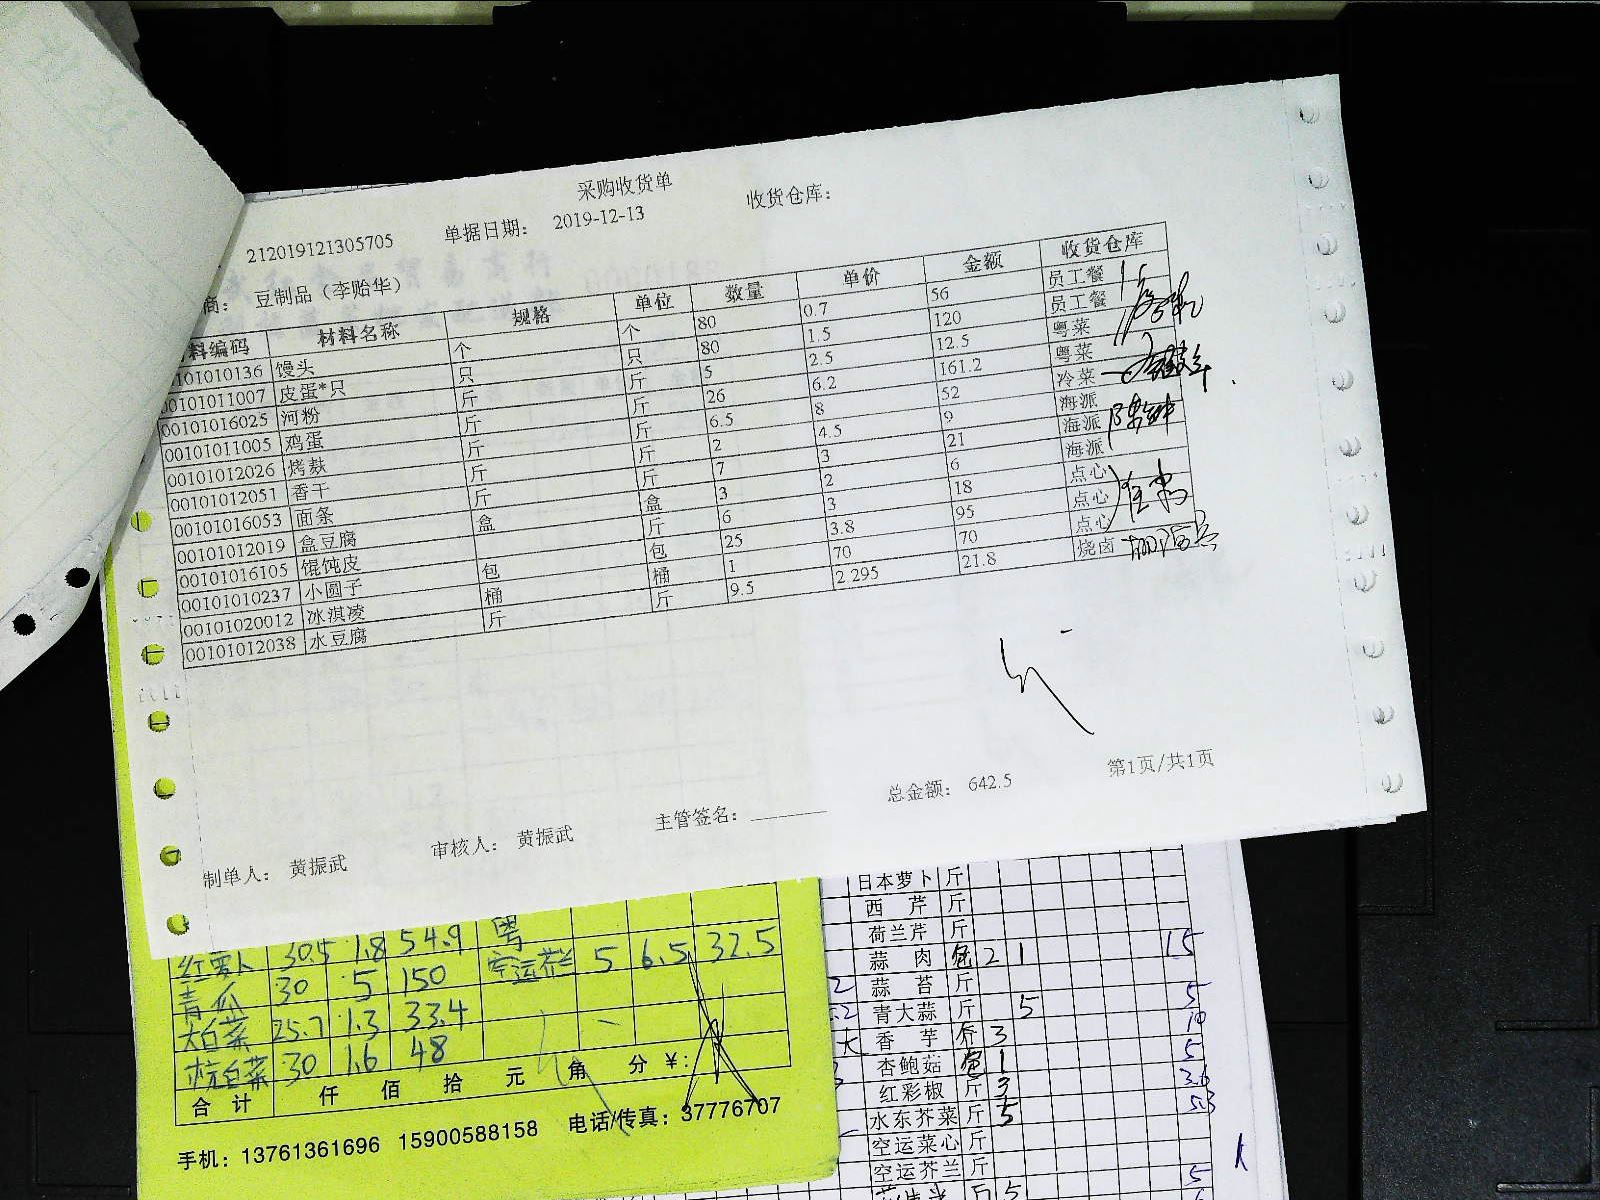 采购收货单
212019121305705 单据日期： 2019-12-13 收货仓库：
商： 豆制品（李贻华）
料编码 材料名称 规格 单位 数量 单价 金额 收货仓库
101010136 馒头 个 个 80 0.7 56 员工餐
00101011007 皮蛋*只 只 只 80 1.5 120 员工餐
00101016025 河粉 斤 斤 5 2.5 12.5 粤菜
00101011005 鸡蛋 斤 斤 26 6.2 161.2 粤菜
00101012026 烤麸 斤 斤 6.5 8 52 冷菜
00101012051 香干 斤 斤 2 4.5 9 海派
00101016053 面条 斤 斤 7 3 21 海派
00101012019 盒豆腐 盒 盒 3 2 6 海派
00101016105 馄饨皮 斤 6 3 18 点心
00101010237 小圆子 包 包 25 3.8 95 点心
00101020012 冰淇凌 桶 桶 1 70 70 点心
00101012038 水豆腐 斤 斤 9.5 2.295 21.8 烧卤
制单人： 黄振武 审核人： 黄振武 主管签名： 总金额： 642.5 第1页/共1页
粤
红萝卜 30.5 1.8 54.9 空运芥兰 5 6.5 32.5
青瓜 30 5 150
大白菜 25.7 1.3 33.4
杭白菜 30 1.6 48
合计 仟 佰 拾 元 角 分 ¥：
手机：13761361696 15900588158 电话/传真：37776707
日本萝卜 斤
西芹 斤
荷兰芹 斤
蒜肉 包 2 1 15
蒜苔 斤
青大蒜 斤 5 5
香芋 斤 3 10
杏鲍菇 包 1 5
红彩椒 斤 3 3.6
水东芥菜 斤 5 5.3
空运菜心 斤
空运芥兰 斤 5